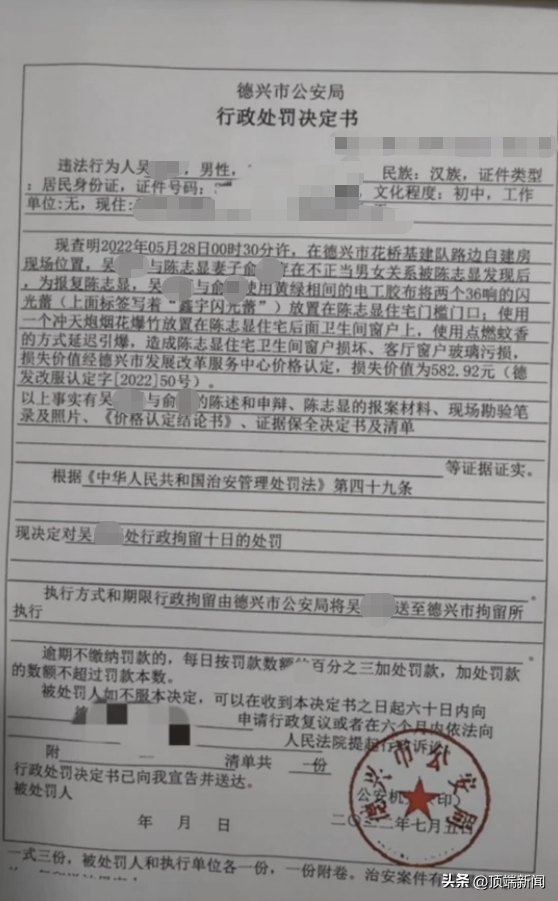 德兴市公安局
行政处罚决定书
违法行为人吴 ，男性， 民族：汉族，证件类型
：居民身份证，证件号码： ，文化程度：初中，工作
单位:无，现住：
现查明2022年05月28日00时30分许，在德兴市花桥基建队路边自建房
现场位置，吴 与陈志显妻子俞 存在不正当男女关系被陈志显发现后
，为报复陈志显，吴 与俞 使用黄绿相间的电工胶布将两个36响的闪
光蕾（上面标签写着“鑫宇闪光蕾”）放置在陈志显住宅门槛门口；使用
一个冲天炮烟花爆竹放置在陈志显住宅后面卫生间窗户上，使用点燃蚊香
的方式延迟引爆，造成陈志显住宅卫生间窗户损坏、客厅窗户玻璃污损，
损失价值经德兴市发展改革服务中心价格认定，损失价值为582.92元（德
发改服认定字[2022]50号）。
以上事实有吴 与俞 的陈述和申辩、陈志显的报案材料、现场勘验笔
录及照片、《价格认定结论书》、证据保全决定书及清单
等证据证实。
根据《中华人民共和国治安管理处罚法》第四十九条
现决定对吴 处行政拘留十日的处罚
。
执行方式和期限行政拘留由德兴市公安局将吴 送至德兴市拘留所
执行
。
逾期不缴纳罚款的，每日按罚款数额 百分之三加处罚款，加处罚款
的数额不超过罚款本数。
被处罚人如不服本决定，可以在收到本决定书之日起六十日内向
申请行政复议或者在六个月内依法向
人民法院提起行 诉讼
附 清单共 一份
行政处罚决定书已向我宣告并送达。
被处罚人 公安机 印）
年 月 日 二〇二二年七月五
德兴市公安局
一式三份，被处罚人和执行单位各一份，一份附卷。治安案件有
头条 @顶端新闻